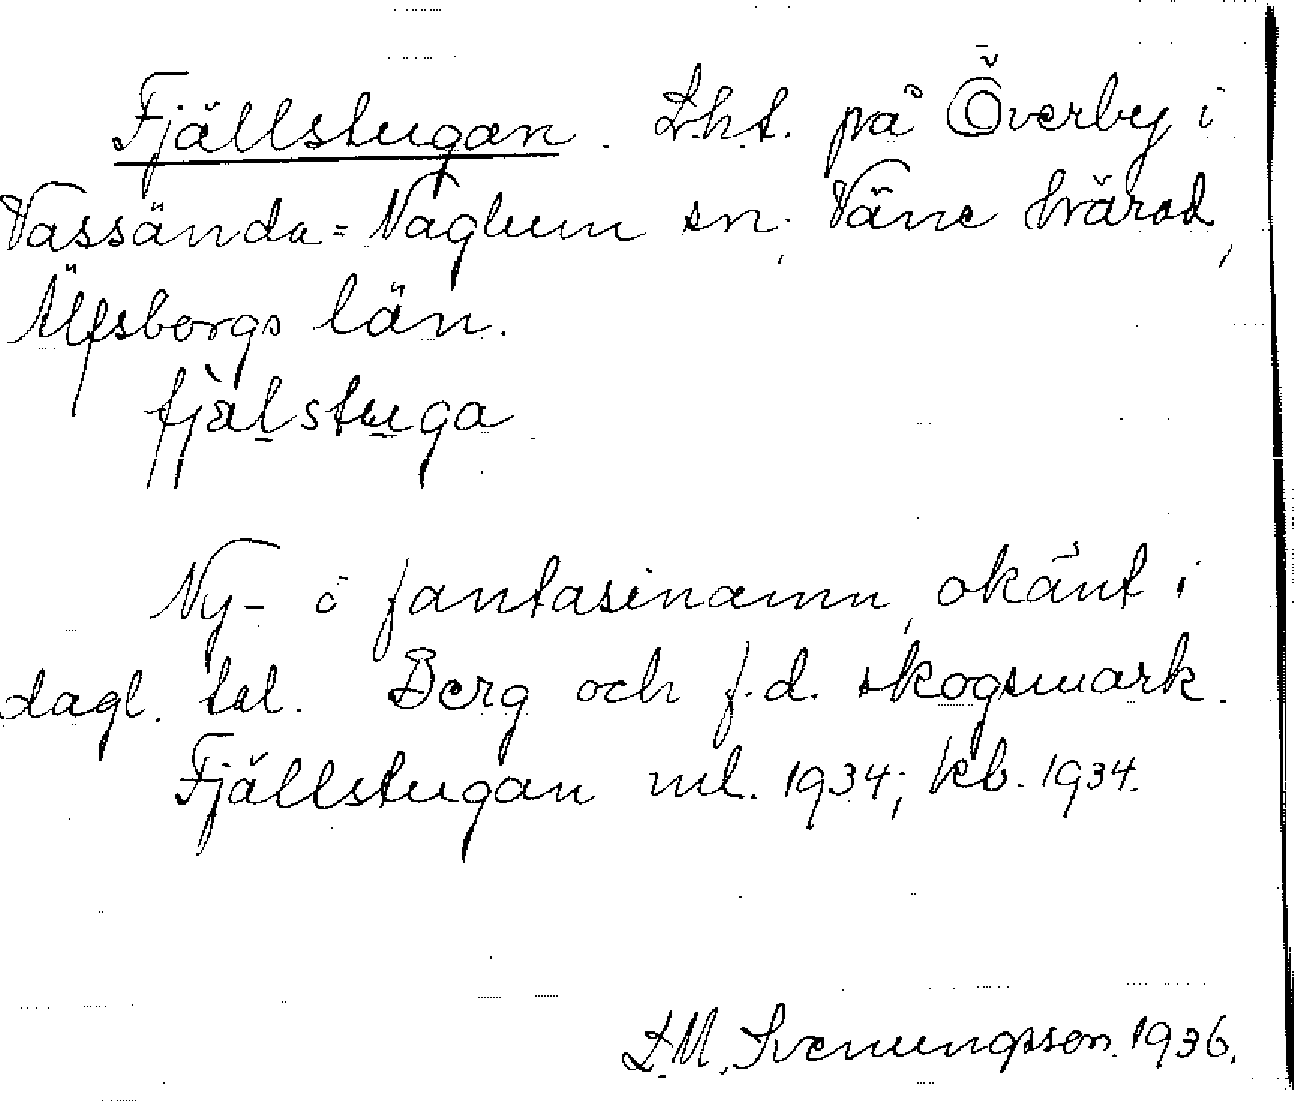 Fjällstugan. Lht. på Överby i
Vassända=Naglum sn, Väne härad,
Älfsborgs län.
fjälstuga
Ny- o fantasinamn, okänt i
dagl. tal. Berg och f.d. skogsmark.
Fjällstugan ml. 1934; kb. 1934.
L.M. Svenungsson. 1936.